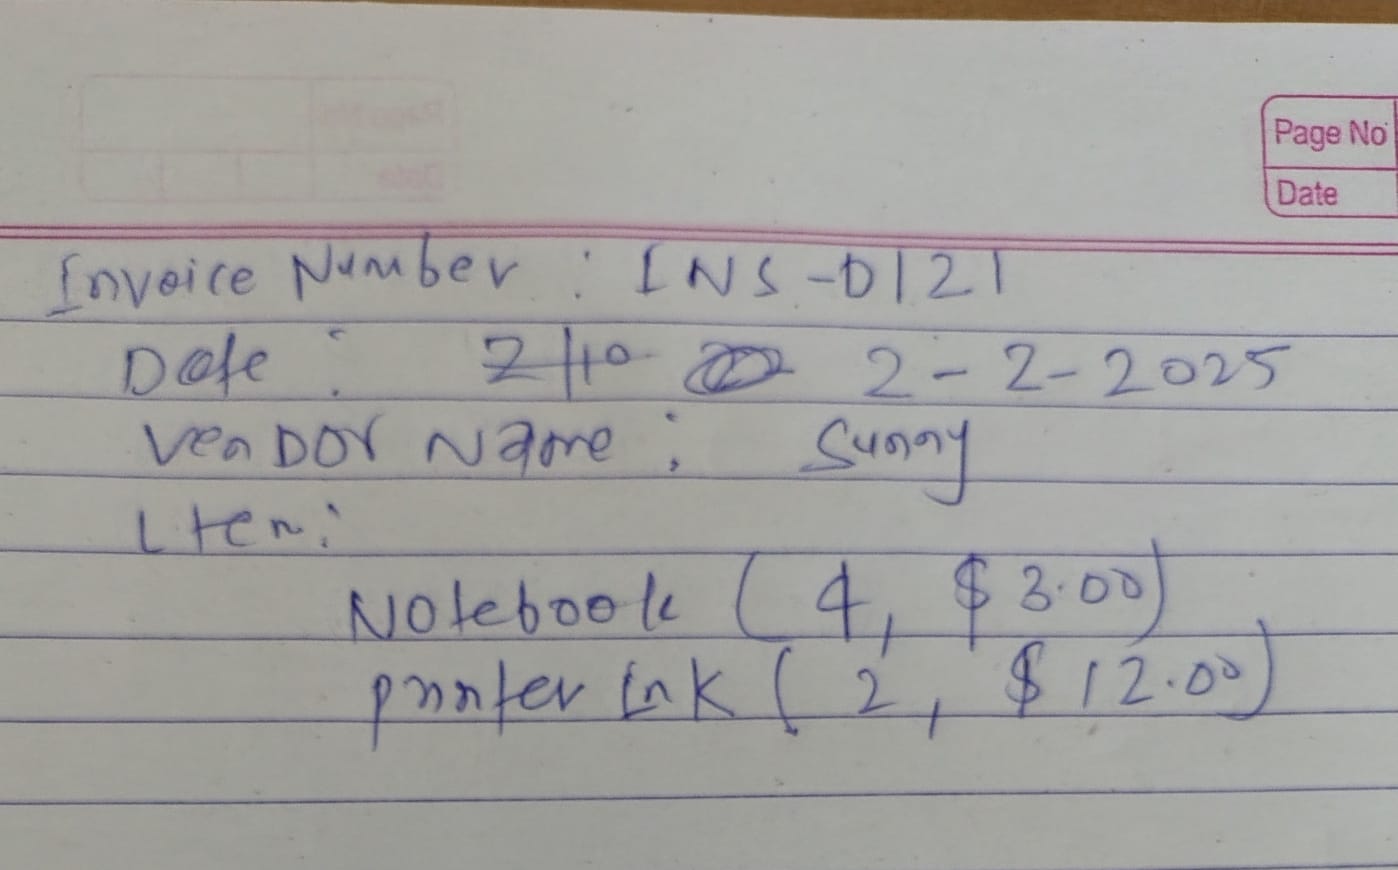 Page No
Date
Invoice Number : INS-0121
Date : 2-2-2025
Vendor Name : Sunny
Item :
Notebook ( 4, $ 3.00)
printer Ink ( 2, $ 12.00)